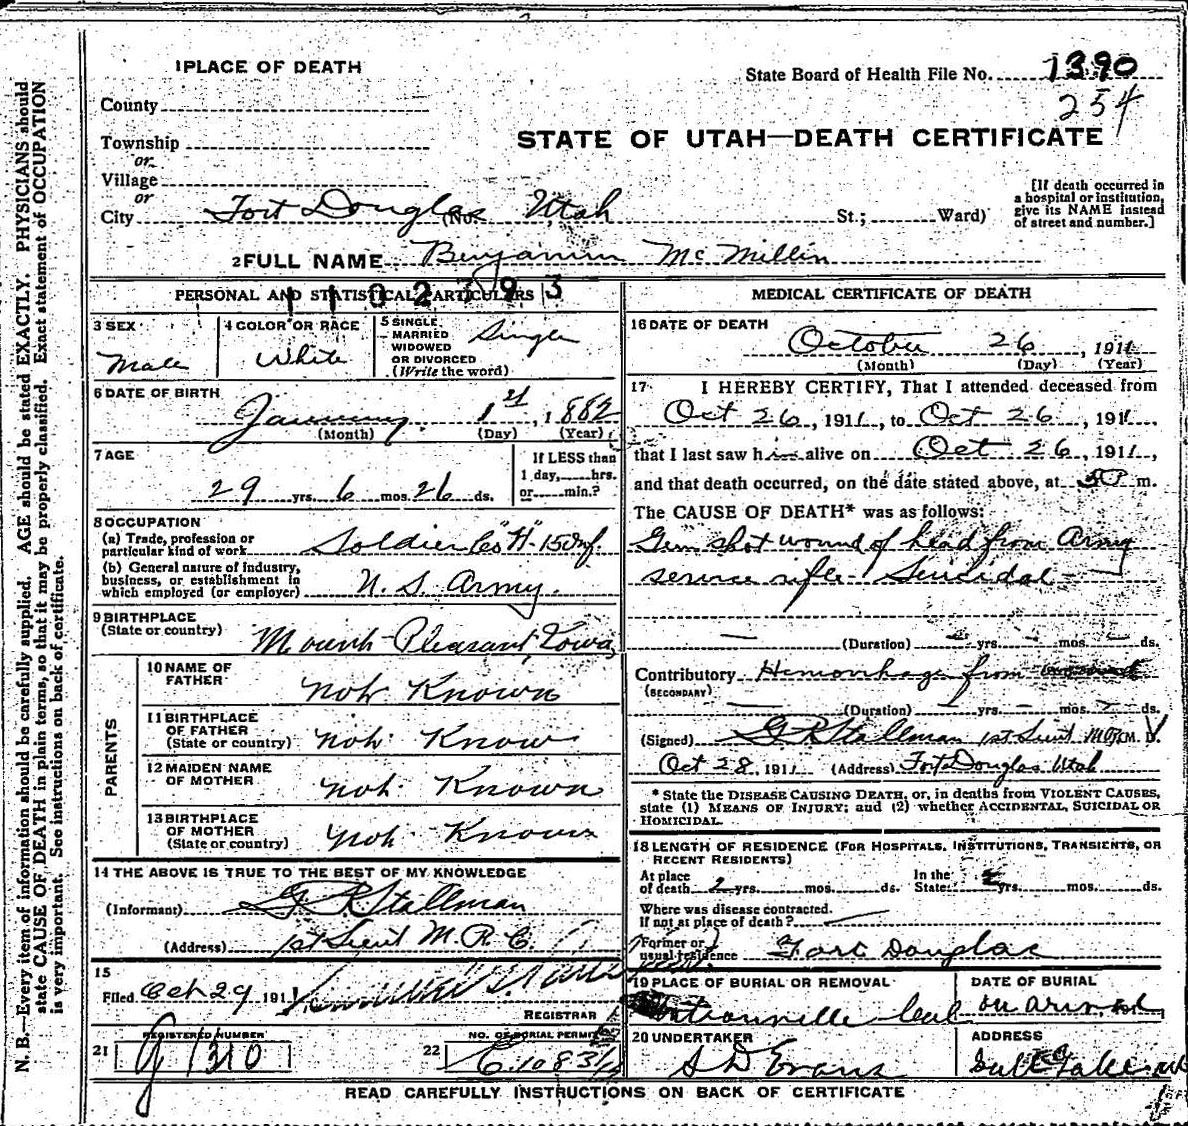 1 PLACE OF DEATH
State Board of Health File No. 1390
254
County
Township
or
Village
or
City Fort Douglas (No. Utah St.; Ward)
STATE OF UTAH—DEATH CERTIFICATE
[If death occurred in a hospital or institution, give its NAME instead of street and number.]
2 FULL NAME Benjamin McMillin
PERSONAL AND STATISTICAL PARTICULARS
1102393
3 SEX Male
4 COLOR OR RACE White
5 SINGLE MARRIED WIDOWED OR DIVORCED (Write the word) Single
6 DATE OF BIRTH
January 1st, 1882
(Month) (Day) (Year)
7 AGE
29 yrs. 6 mos. 26 ds.
If LESS than 1 day, hrs. or min.?
8 OCCUPATION
(a) Trade, profession or particular kind of work Soldier Co "H" 15 Inf.
(b) General nature of industry, business, or establishment in which employed (or employer) U. S. Army.
9 BIRTHPLACE
(State or country) Mount Pleasant, Iowa,
PARENTS
10 NAME OF FATHER not Known
11 BIRTHPLACE OF FATHER (State or country) not Know
12 MAIDEN NAME OF MOTHER not Known
13 BIRTHPLACE OF MOTHER (State or country) not Known
14 THE ABOVE IS TRUE TO THE BEST OF MY KNOWLEDGE
(Informant) G R Stallman
(Address) 1st Lieut M.R.C.
15
Filed Oct 29 1911
REGISTRAR
REGISTERED NUMBER
21 1310
NO. OF BURIAL PERMIT
22
MEDICAL CERTIFICATE OF DEATH
16 DATE OF DEATH
October 26, 1911
(Month) (Day) (Year)
17 I HEREBY CERTIFY, That I attended deceased from
Oct 26, 1911, to Oct 26, 1911.
that I last saw him alive on Oct 26, 1911,
and that death occurred, on the date stated above, at m.
The CAUSE OF DEATH* was as follows:
Gun shot wound of head from Army
service rifle. Suicidal
(Duration) yrs. mos. ds.
Contributory Hemorrhage from
(SECONDARY)
(Duration) yrs. mos. ds.
(Signed) G R Stallman 1st Lieut M.R.C. M. D.
Oct 28, 1911 (Address) Fort Douglas Utah
* State the DISEASE CAUSING DEATH, or, in deaths from VIOLENT CAUSES, state (1) MEANS OF INJURY; and (2) whether ACCIDENTAL, SUICIDAL OR HOMICIDAL.
18 LENGTH OF RESIDENCE (FOR HOSPITALS, INSTITUTIONS, TRANSIENTS, OR RECENT RESIDENTS)
At place of death 2 yrs. mos. ds. In the State yrs. mos. ds.
Where was disease contracted. If not at place of death?
Former or usual residence Fort Douglas
19 PLACE OF BURIAL OR REMOVAL
DATE OF BURIAL
on arrival
20 UNDERTAKER
S D Evans
ADDRESS
Salt Lake
READ CAREFULLY INSTRUCTIONS ON BACK OF CERTIFICATE
N. B.—Every item of information should be carefully supplied. AGE should be stated EXACTLY. PHYSICIANS should
state CAUSE OF DEATH in plain terms, so that it may be properly classified. Exact statement of OCCUPATION
is very important. See instructions on back of certificate.